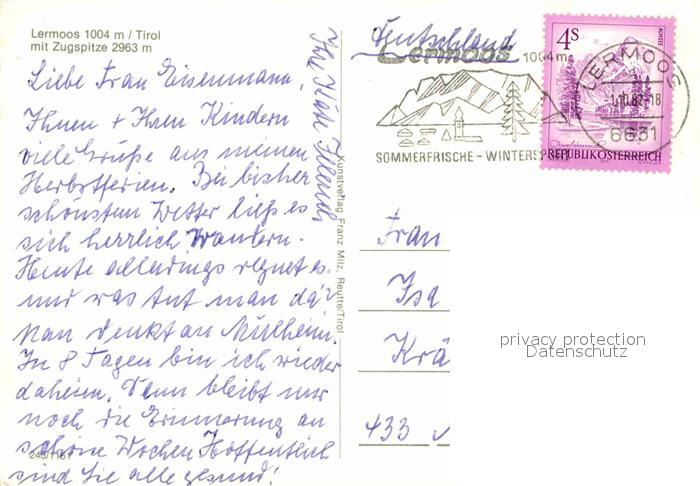 Lermoos 1004 m / Tirol
mit Zugspitze 2963 m
Liebe Frau Eisenmann,
Ihnen + Ihren Kindern
viele Grüße aus meinen
Herbstferien. Bei bisher
schönstem Wetter ließ es
sich herrlich wandern.
Heute allerdings regnet es.
und was tut man da?
Man denkt an Mülheim.
In 8 Tagen bin ich wieder
daheim. Dann bleibt nur
noch die Erinnerung an
schöne Wochen Hoffentlich
sind Sie alle gesund!
Ihre
Kunstverlag Franz Milz, Reutte/Tirol
Deutschland
Lermoos 1004 m
SOMMERFRISCHE - WINTERSPORT
LERMOOS
1.10.82-18
6631
4S
ALMSEE
REPUBLIK ÖSTERREICH
Frau
Isa
Krä
433
privacy protection
Datenschutz